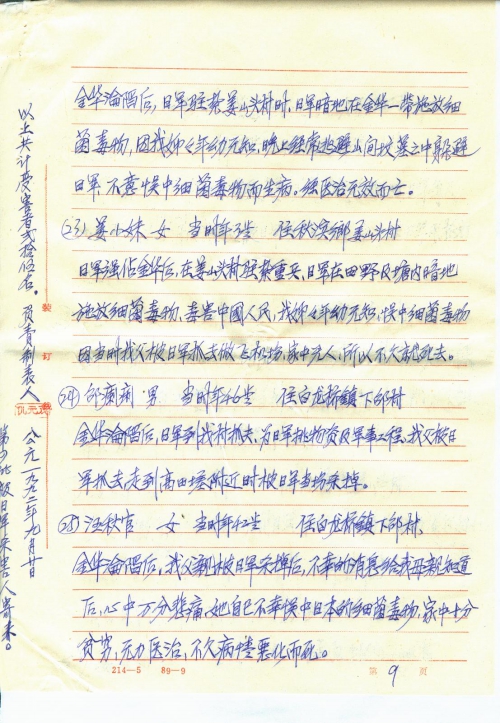 金华沦陷后,日军驻扎姜山头村时,日军暗地在金华一带施放细
菌毒物,因我妳年幼无知,晚上经常越避山间坟墓之中躲避
日军,不意悮中细菌毒物而生病。经医治无效而亡。
(23)姜小妹 女 当时年3岁 住秋滨鄉姜山头村
日军强佔金华后,在姜山头村驻扎重兵,日军在田野及塘内暗地
施放细菌毒物,毒害中國人民,我妳年幼无知,悮中细菌毒物
因当时我父被日军抓去做飞机场,家中无人,所以不久就死去。
(24)邰 男 当时年46岁 住白龙桥镇下邰村
金华沦陷后,日军到我村抓夫,为日军挑物资及军事工程,我父被日
军抓去走到高田塍附近时被日军当场杀掉。
(25)汪秋官 女 当时年42岁 住白龙桥镇下邰村,
金华沦陷后,我父親被日军杀掉后,不幸的消息给我母親知道
后,心中万分悲痛,她自己不幸悮中日本的细菌毒物,家中十分
贫穷,无力医治,不久病情悪化而死。
214—5 89—9
第 9 页
以上共计受害者弍拾伍名。 负责制表人
公元一九九二年九月廿日
装
订
日军杀害人